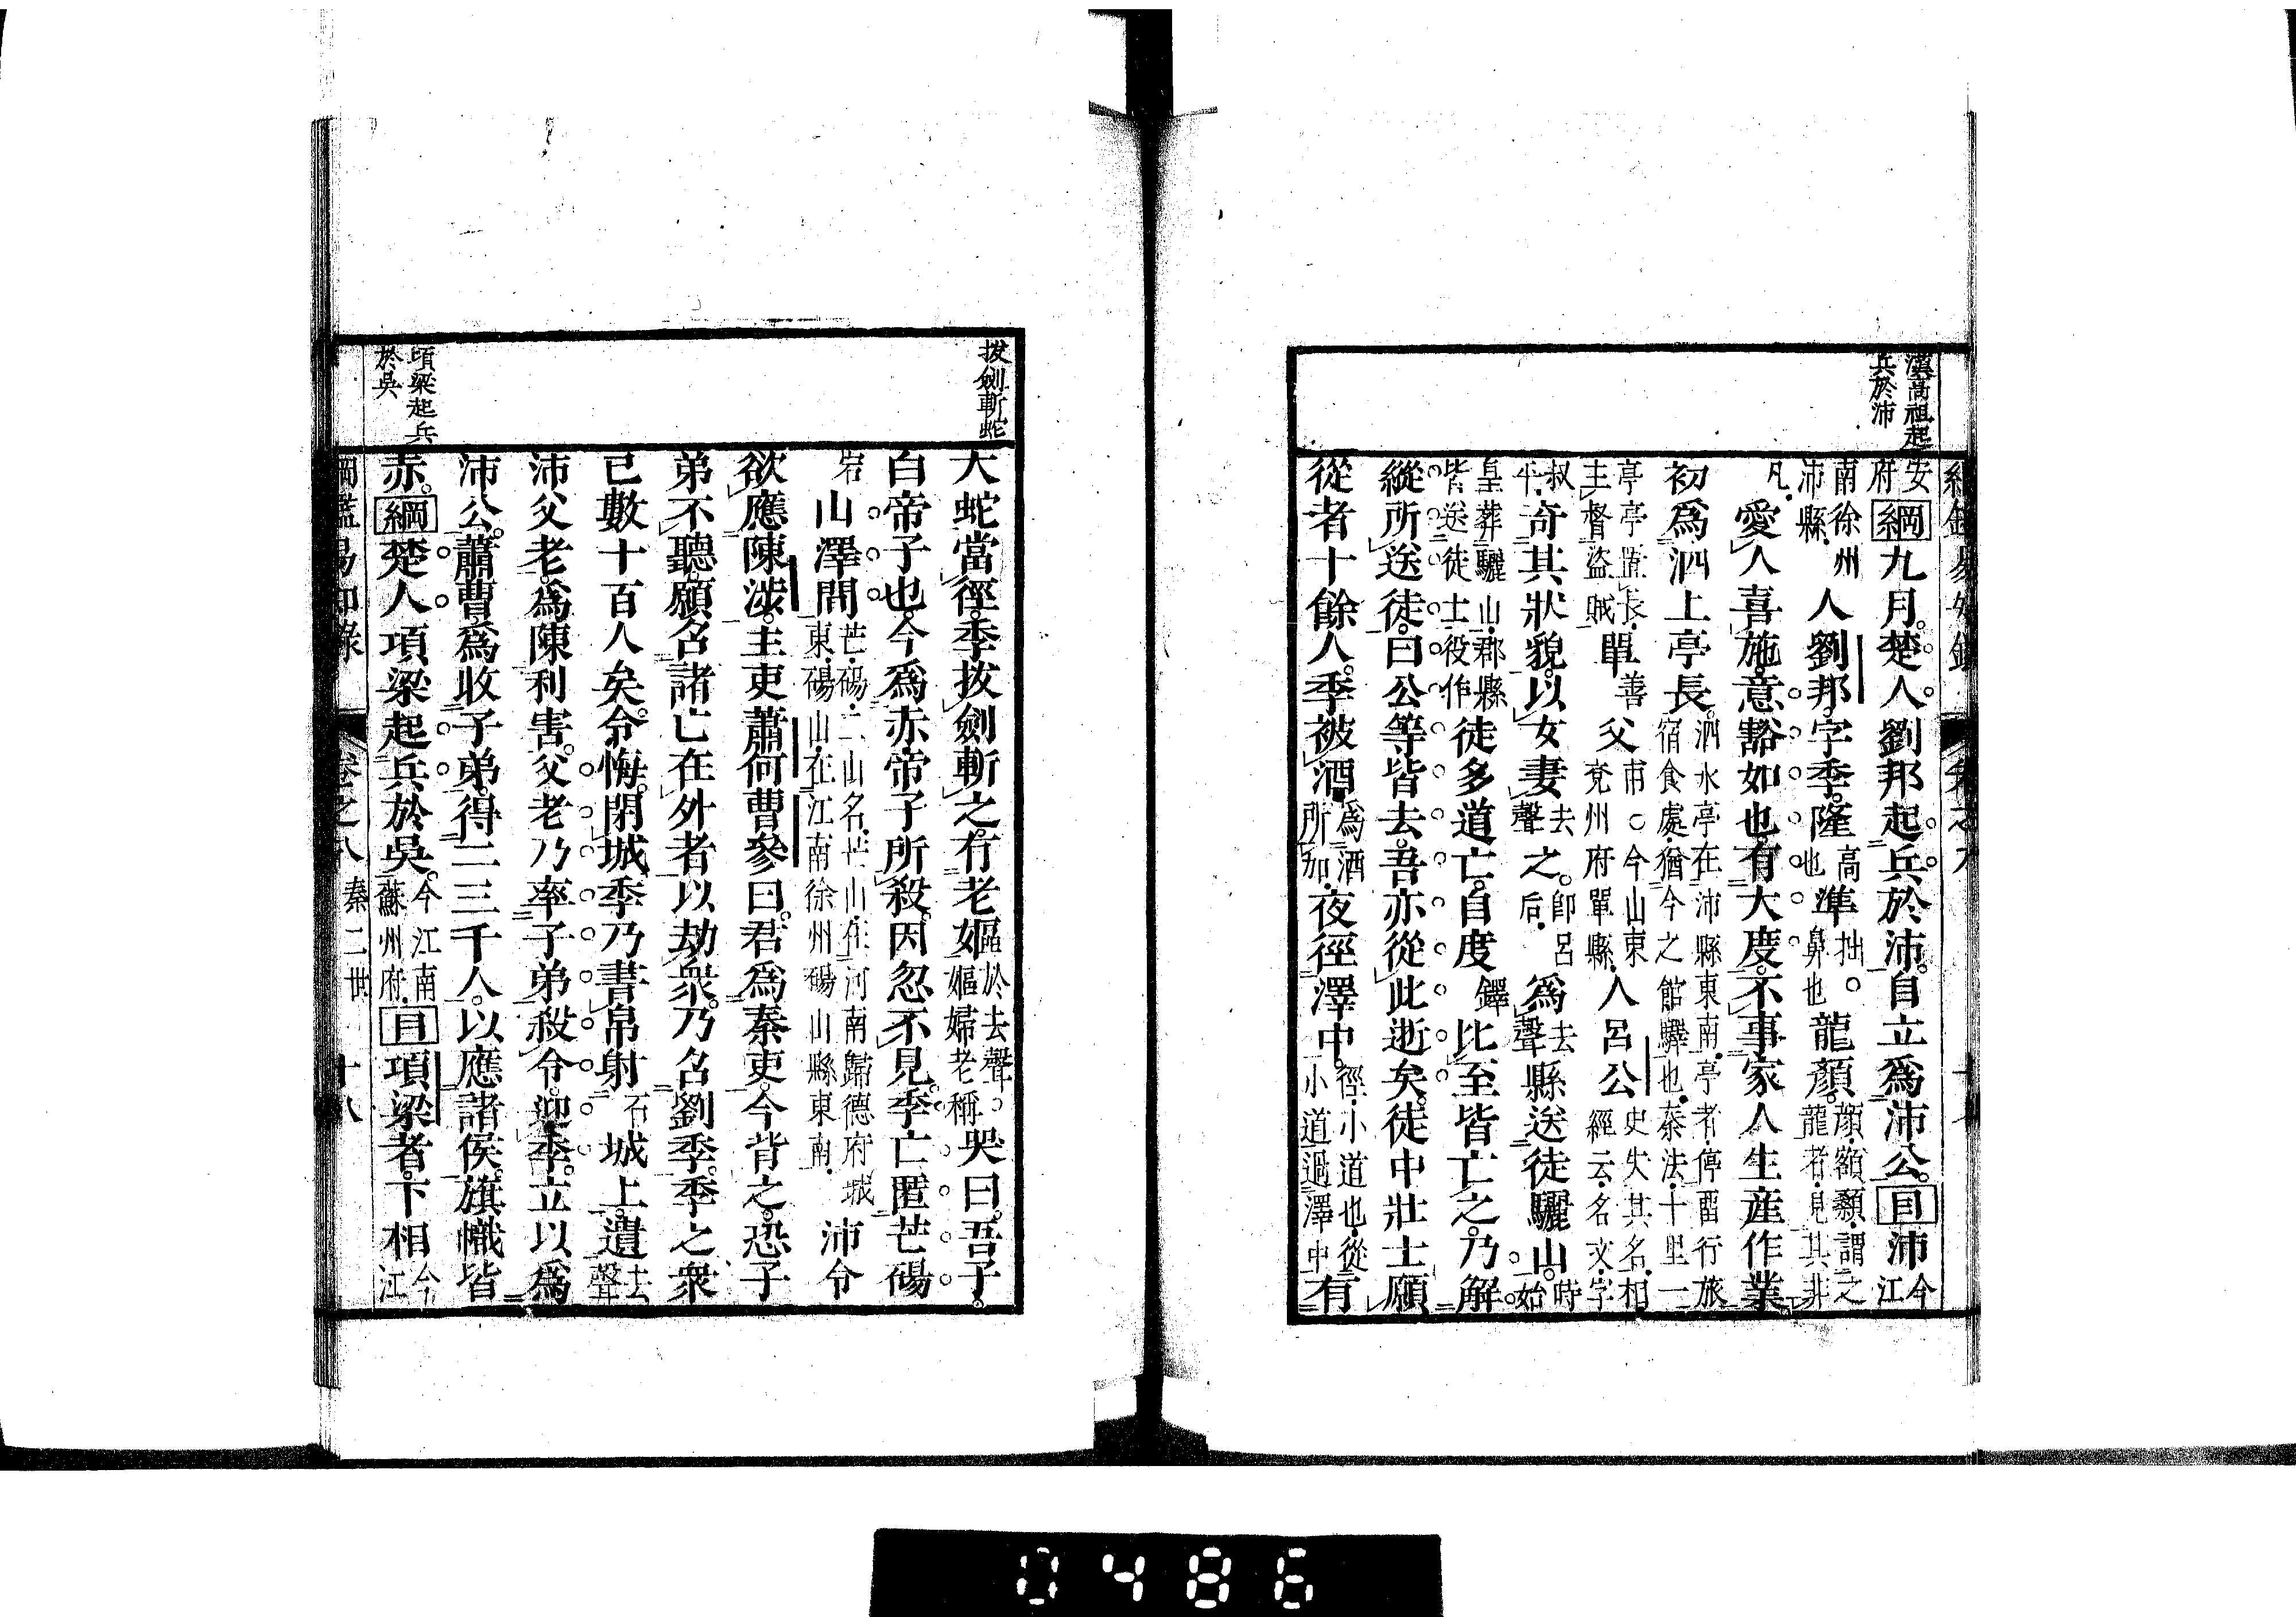 漢高祖起
兵於沛
安府綱九月。楚人。劉邦起兵於沛。自立爲沛公。目沛今江
南徐州沛縣人劉邦。字季。隆高也準拙。鼻也龍顏。顏額顙謂之龍者見其非
凡愛人喜施。意豁如也。有大度。不事家人生産作業
初爲泗上亭長。泗水亭在沛縣東南。亭者停畱行旅宿食處。猶今之館驛也。秦法十里一
亭亭置長。主督盜賊單善父甫。○今山東兗州府單縣人呂公史失其名。相經云名文字
叔平奇其狀貌。以女妻去聲之。卽呂后爲去聲縣送徒驪山。時始
皇葬驪山。郡縣皆送徒士役作徒多道亡。自度鐸比至皆亡之。乃解
縱所送徒。曰公等皆去。吾亦從此逝矣。徒中壯士願
從者十餘人。季被酒爲酒所加。夜徑澤中。徑小道也。從小道過澤中有
拔劍斬蛇
大蛇當徑。季拔劍斬之。有老嫗於去聲。嫗婦老稱哭曰。吾子。
白帝子也。今爲赤帝子所殺。因忽不見。季亡匿芒碭
宕山澤間芒碭二山名。芒山在河南歸德府城東。碭山在江南徐州碭山縣東南沛令
欲應陳涉。主吏蕭何曹參曰。君爲秦吏。今背之。恐子
弟不聽。願召諸亡在外者。以劫衆。乃召劉季。季之衆
已數十百人矣。令悔。閉城。季乃書帛射石城上。遺去聲
沛父老。爲陳利害。父老乃率子弟殺令。迎季。立以爲
沛公。蕭曹爲收子弟。得二三千人。以應諸侯。旗幟皆
赤。綱楚人項梁起兵於吳。今江南蘇州府目項梁者。下相今江
項梁起兵
於吳
綱鑑易知錄 卷之八 秦二世 十八
0486